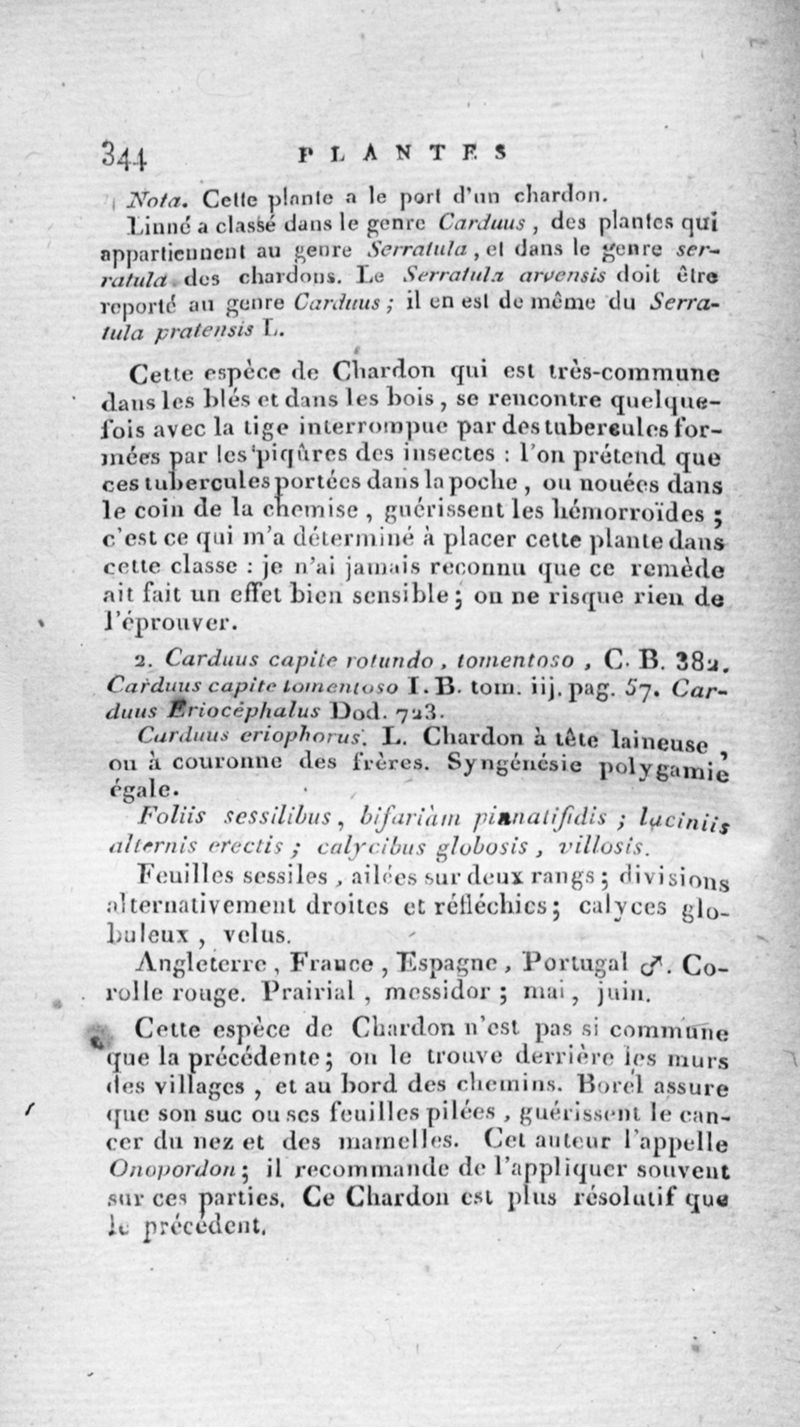 344 PLANTES
Nota. Cette plante a le port d'un chardon.
Linné a classé dans le genre Carduus, des plantes qui
appartiennent au genre Serratula, et dans le genre ser-
ratula des chardons. Le Serratula arvensis doit être
reporté au genre Carduus; il en est de même du Serra-
tula pratensis L.
Cette espèce de Chardon qui est très-commune
dans les blés et dans les bois, se rencontre quelque-
fois avec la tige interrompue par des tubercules for-
mées par les piqûres des insectes : l'on prétend que
ces tubercules portées dans la poche, ou nouées dans
le coin de la chemise, guérissent les hémorroïdes ;
c'est ce qui m'a déterminé à placer cette plante dans
cette classe : je n'ai jamais reconnu que ce remède
ait fait un effet bien sensible; on ne risque rien de
l'éprouver.
2. Carduus capite rotundo, tomentoso, C. B. 382.
Carduus capite tomentoso I. B. tom. iij. pag. 57. Car-
duus Eriocephalus Dod. 723.
Carduus eriophorus. L. Chardon à tête laineuse,
ou à couronne des frères. Syngénésie polygamie
égale.
Foliis sessilibus, bifariàm pinnatifidis ; laciniis
alternis erectis ; calycibus globosis, villosis.
Feuilles sessiles, ailées sur deux rangs; divisions
alternativement droites et réfléchies; calyces glo-
buleux, velus.
Angleterre, France, Espagne, Portugal ♂. Co-
rolle rouge. Prairial, messidor ; mai, juin.
Cette espèce de Chardon n'est pas si commune
que la précédente; on le trouve derrière les murs
des villages, et au bord des chemins. Borel assure
que son suc ou ses feuilles pilées, guérissent le can-
cer du nez et des mamelles. Cet auteur l'appelle
Onopordon; il recommande de l'appliquer souvent
sur ces parties. Ce Chardon est plus résolutif que
le précédent.